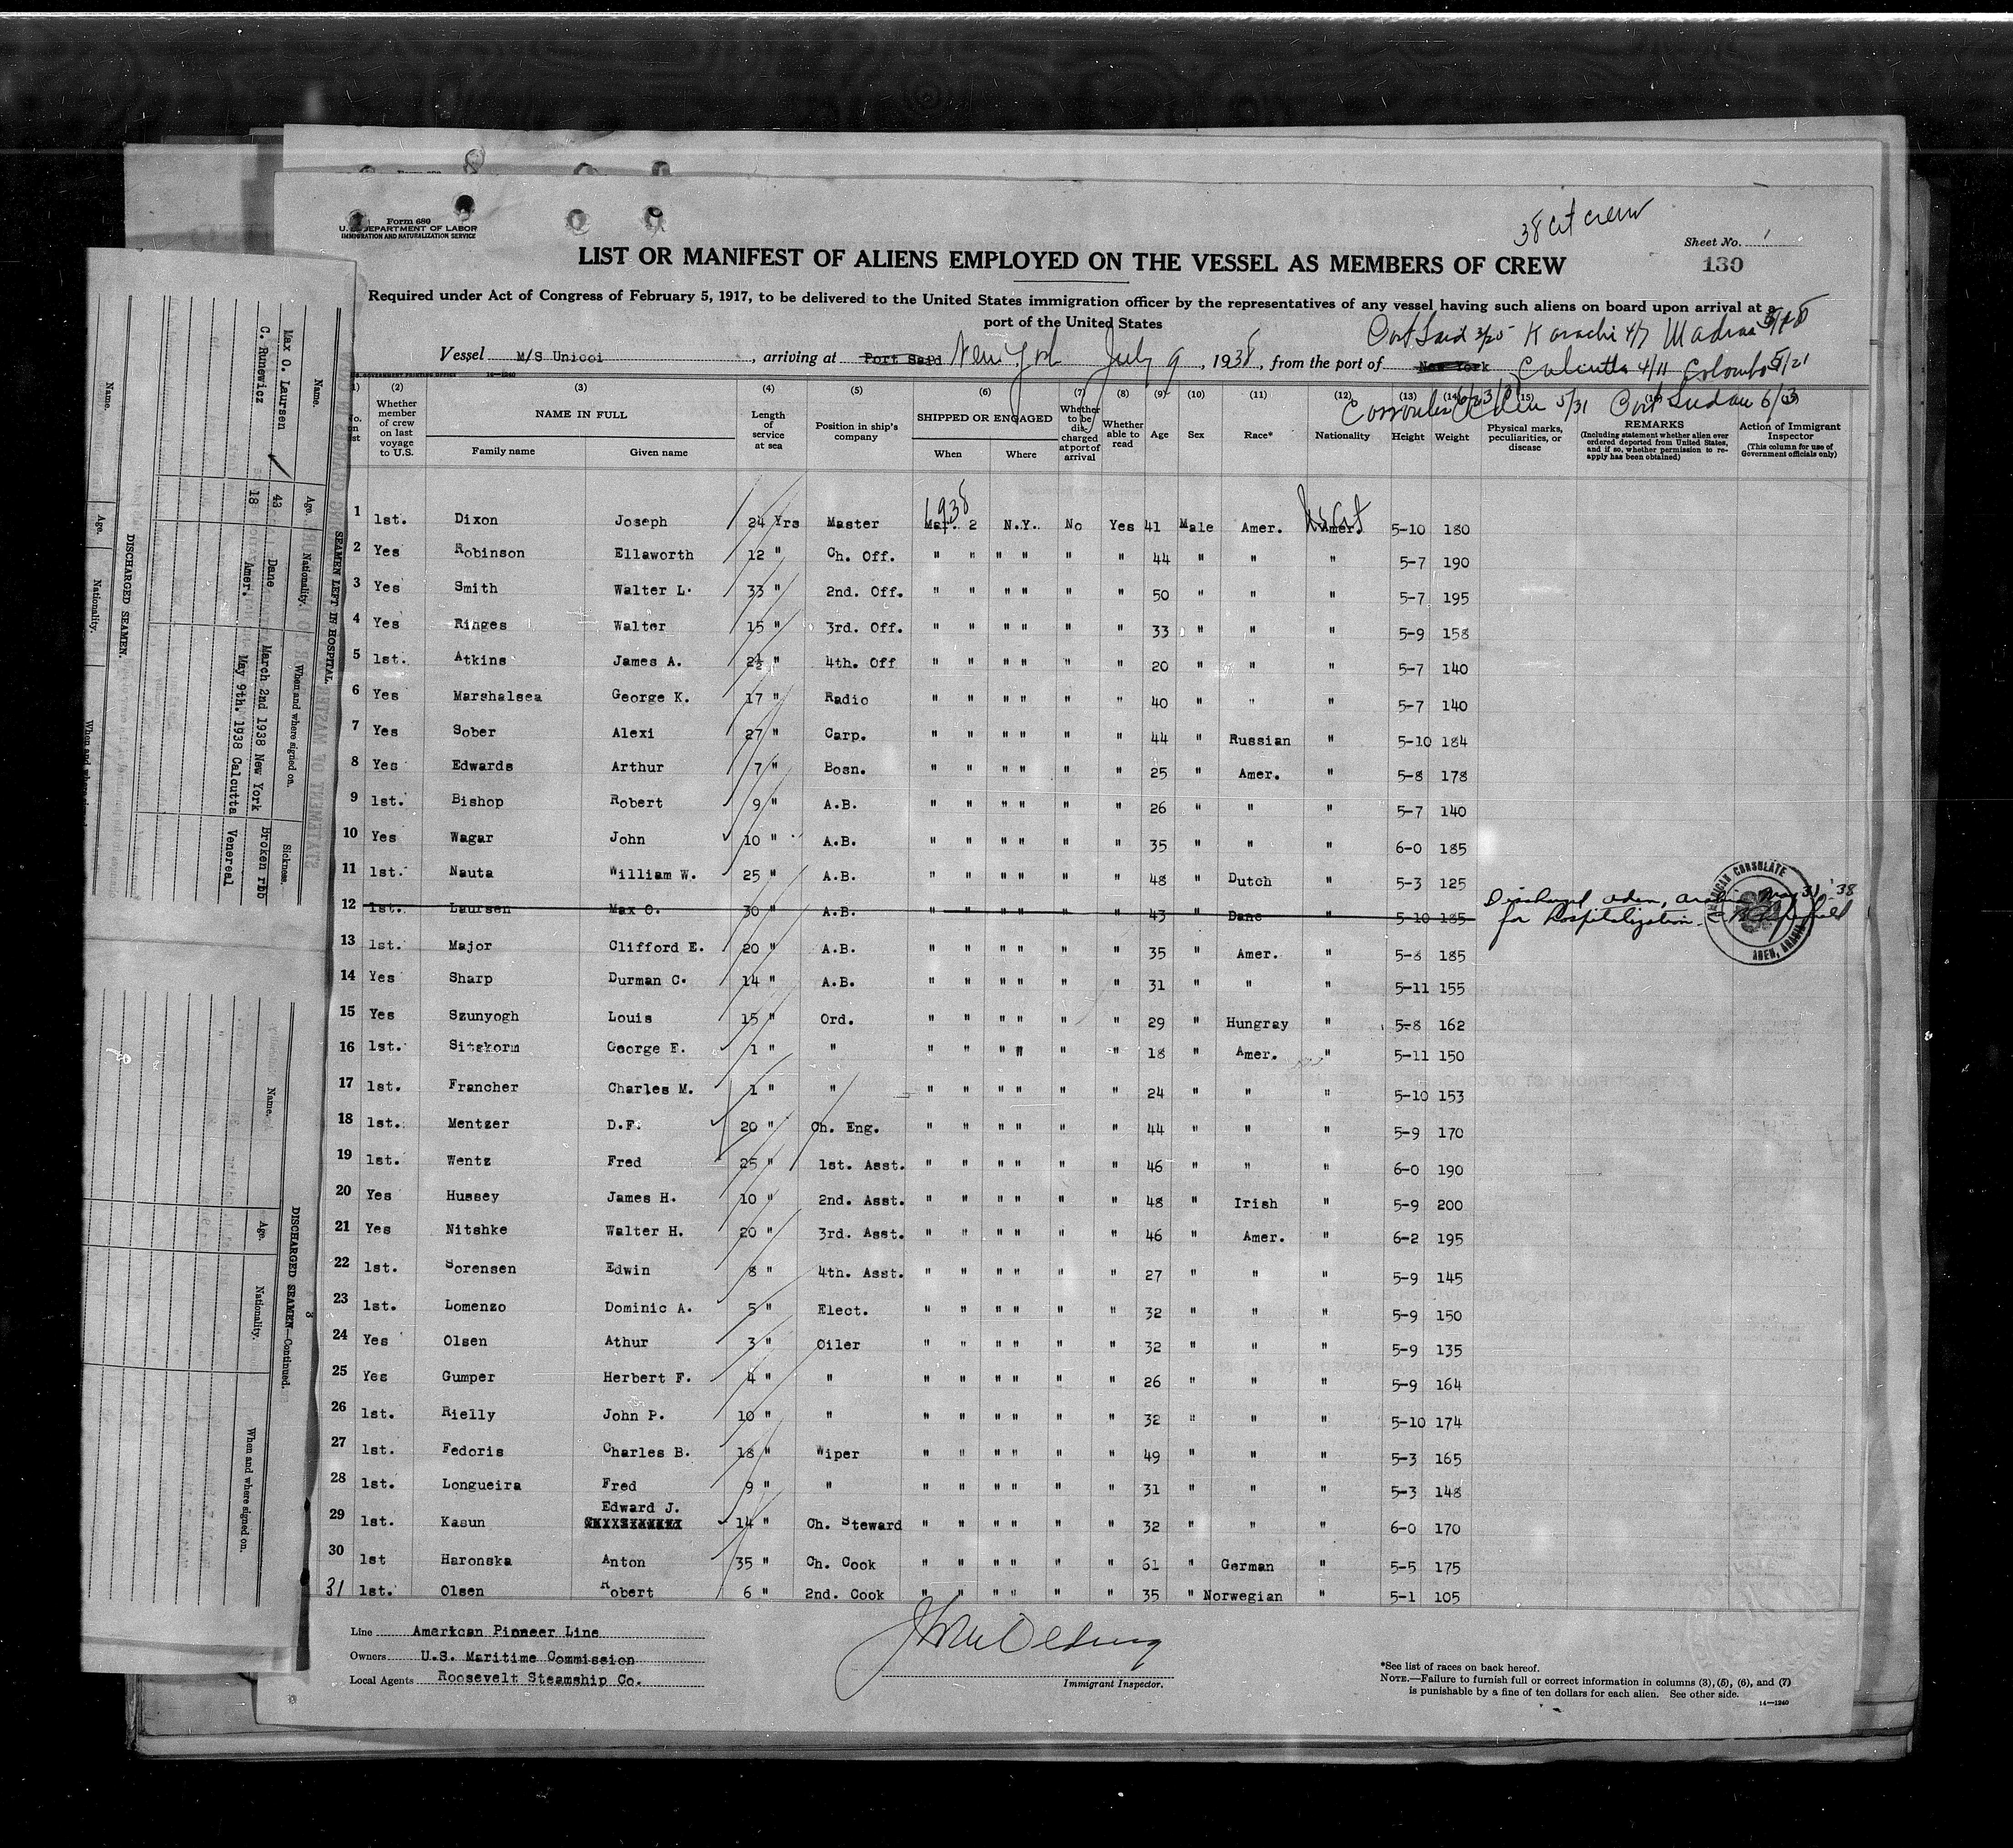 Form 680
U. S. DEPARTMENT OF LABOR
IMMIGRATION AND NATURALIZATION SERVICE
38 cit crew
Sheet No. 1
130
LIST OR MANIFEST OF ALIENS EMPLOYED ON THE VESSEL AS MEMBERS OF CREW
Required under Act of Congress of February 5, 1917, to be delivered to the United States immigration officer by the representatives of any vessel having such aliens on board upon arrival at a
port of the United States
Port Said 3/25 Karachi 4/7 Madras
Vessel M/S Unicoi , arriving at Port Said New York July 9 , 1938, from the port of New York Calcutta 4/11 Colombo 5/21
Aden 5/31 Port Sudan 6/3
(1) (2) (3) (4) (5) (6) (7) (8) (9) (10) (11) (12) (13) (14) (15) (16)
No. on list
Whether member of crew on last voyage to U.S.
NAME IN FULL
Family name Given name
Length of service at sea
Position in ship's company
SHIPPED OR ENGAGED
When Where
Whether to be discharged at port of arrival
Whether able to read
Age Sex Race* Nationality Height Weight
Physical marks, peculiarities, or disease
REMARKS
(Including statement whether alien ever ordered deported from United States, and if so, whether permission to reapply has been obtained)
Action of Immigrant Inspector
(This column for use of Government officials only)
1938
1 1st. Dixon Joseph 24 Yrs Master Mar. 2 N.Y. No Yes 41 Male Amer. Amer. 5-10 180
2 Yes Robinson Ellaworth 12 " Ch. Off. " " " " " " 44 " " " 5-7 190
3 Yes Smith Walter L. 33 " 2nd. Off. " " " " " " 50 " " " 5-7 195
4 Yes Ringes Walter 15 " 3rd. Off. " " " " " " 33 " " " 5-9 158
5 1st. Atkins James A. 2½ " 4th. Off " " " " " " 20 " " " 5-7 140
6 Yes Marshalsea George K. 17 " Radio " " " " " " 40 " " " 5-7 140
7 Yes Sober Alexi 27 " Carp. " " " " " " 44 " Russian " 5-10 184
8 Yes Edwards Arthur 7 " Bosn. " " " " " " 25 " Amer. " 5-8 178
9 1st. Bishop Robert 9 " A.B. " " " " " " 26 " " " 5-7 140
10 Yes Wagar John 10 " A.B. " " " " " " 35 " " " 6-0 185
11 1st. Nauta William W. 25 " A.B. " " " " " " 48 " Dutch " 5-3 125
12 1st. Laursen Max O. 30 " A.B. " " " " " " 43 " Dane " 5-10 185 Discharged Aden, Arabia May 31, '38
for hospitalization.
AMERICAN CONSULATE
ADEN, ARABIA
13 1st. Major Clifford E. 20 " A.B. " " " " " " 35 " Amer. " 5-8 185
14 Yes Sharp Durman C. 14 " A.B. " " " " " " 31 " " " 5-11 155
15 Yes Szunyogh Louis 15 " Ord. " " " " " " 29 " Hungray " 5-8 162
16 1st. Sitskorm George F. 1 " " " " " " " " 18 " Amer. " 5-11 150
17 1st. Francher Charles M. 1 " " " " " " " " 24 " " " 5-10 153
18 1st. Mentzer D.F. 20 " Ch. Eng. " " " " " " 44 " " " 5-9 170
19 1st. Wentz Fred 25 " 1st. Asst. " " " " " " 46 " " " 6-0 190
20 Yes Hussey James H. 10 " 2nd. Asst. " " " " " " 48 " Irish " 5-9 200
21 Yes Nitshke Walter H. 20 " 3rd. Asst. " " " " " " 46 " Amer. " 6-2 195
22 1st. Sorensen Edwin 8 " 4th. Asst. " " " " " " 27 " " " 5-9 145
23 1st. Lomenzo Dominic A. 5 " Elect. " " " " " " 32 " " " 5-9 150
24 Yes Olsen Athur 3 " Oiler " " " " " " 32 " " " 5-9 135
25 Yes Gumper Herbert F. 4 " " " " " " " " 26 " " " 5-9 164
26 1st. Rielly John P. 10 " " " " " " " " 32 " " " 5-10 174
27 1st. Fedoris Charles B. 18 " Wiper " " " " " " 49 " " " 5-3 165
28 1st. Longueira Fred 9 " " " " " " " " 31 " " " 5-3 148
29 1st. Kasun Edward J. 14 " Ch. Steward " " " " " " 32 " " " 6-0 170
30 1st Haronska Anton 35 " Ch. Cook " " " " " " 61 " German " 5-5 175
31 1st. Olsen Robert 6 " 2nd. Cook " " " " " " 35 " Norwegian " 5-1 105
Line American Pioneer Line
Owners U.S. Maritime Commission
Local Agents Roosevelt Steamship Co.
Immigrant Inspector.
*See list of races on back hereof.
NOTE.—Failure to furnish full or correct information in columns (3), (5), (6), and (7)
is punishable by a fine of ten dollars for each alien. See other side.
14—1240
SEAMEN LEFT IN HOSPITAL.
Name. Age. Nationality. When and where signed on. Sickness.
Max O. Laursen 43 Dane March 2nd 1938 New York Broken rbb
C. Runewicz 18 Amer. May 9th. 1938 Calcutta Venereal
DISCHARGED SEAMEN.
Name. Age. Nationality. When and where
3
DISCHARGED SEAMEN—Continued.
Name. Age. Nationality. When and where signed on.